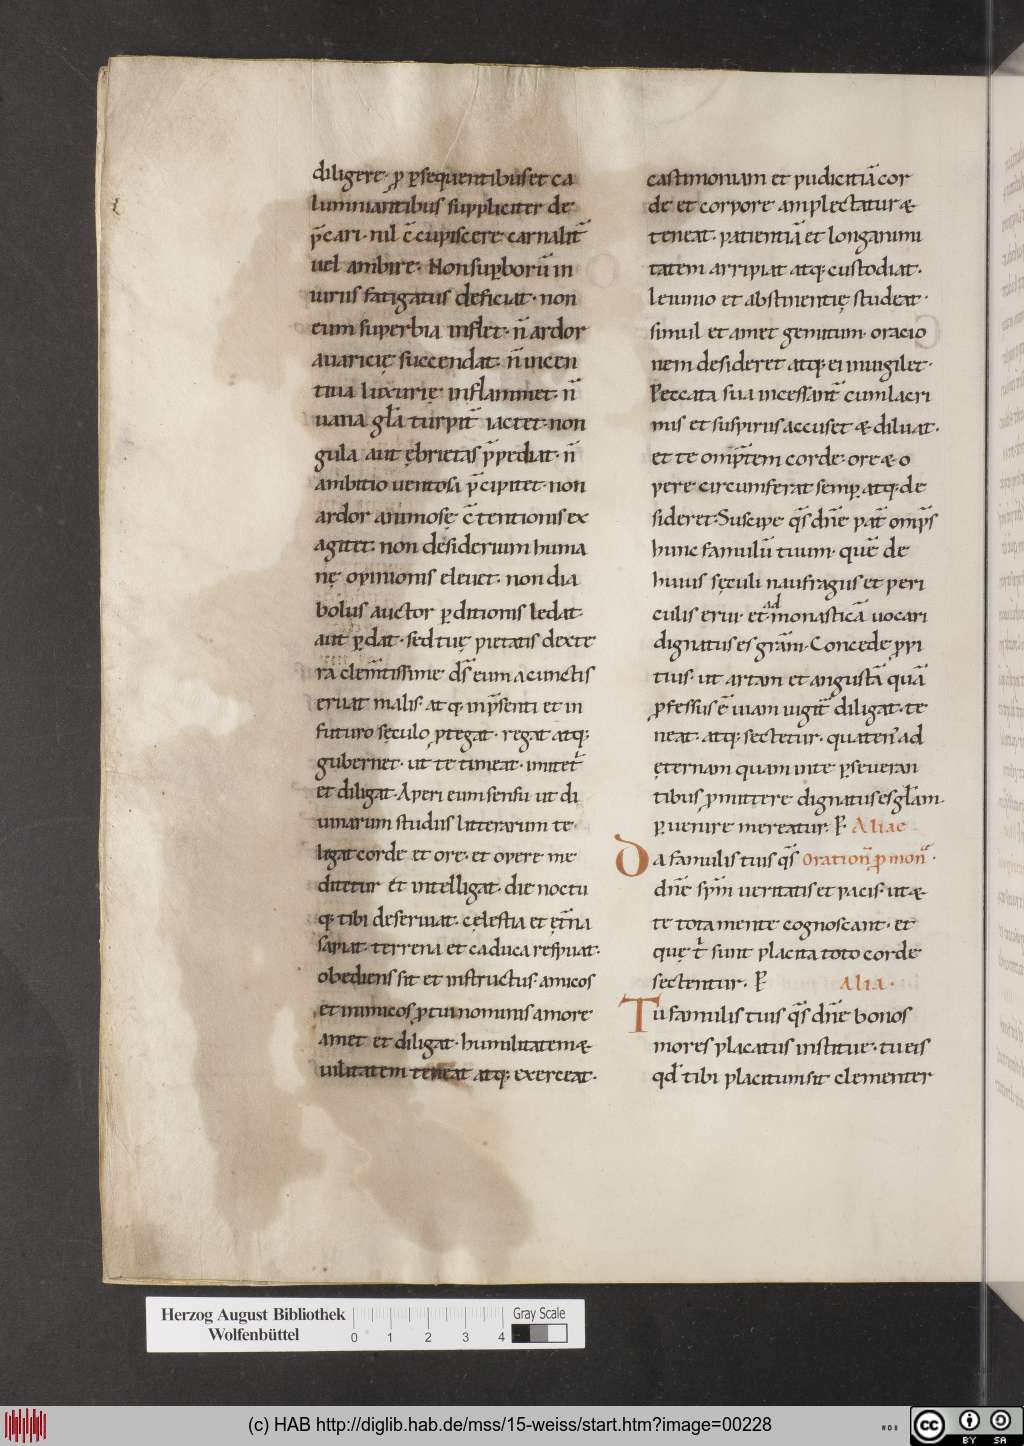 diligere· ꝓ ꝑsequentibus et ca
lumniantibus suppliciter de
p̄cari· nil c̄cupiscere carnalit̄
uel ambire· Non suꝑborū in
uirus fatigatus deficiat· non
eum superbia inflet· n̄ ardor
auaricię succendat· n̄ incen
tiua luxurię inflammet· n̄
uana gl̄a turpit̄ iactet· non
gula aut ębrietas p̄pediat· n̄
ambitio uentosa p̄cipitet· non
ardor animosę c̄tentionis ex
agitet· non desiderium huma
nę opinionis eleuet· non dia
bolus auctor ꝑditionis ledat·
aut ꝑdat· sed tuę pietatis dexte
ra clem̄tissime ds̄ eum a cunctis
eruat malis· atq· in p̄senti et in
futuro sęculo ꝓtegat· regat atq;
gubernet· ut te timeat· imitet᷑
et diligat· Aperi eum sensu ut di
uinarum studiis litterarum te·
ligat corde et ore· et opere me
ditetur et intelligat· die noctu
q; tibi deseruiat· cęlestia et ęt̄na
sapiat· terrena et caduca respuat·
obediens sit et instructus· amicos
et inimicos ꝓ tui nominis amore
amet et diligat· humilitatem &
uilitatem teneat atq; exerceat·
castimoniam et pudicitiā cor
de et corpore amplectatur &
teneat· patientiā et longanimi
tatem arripiat atq; custodiat·
Ieiunio et abstinentię studeat·
simul et amet gemitum· oracio
nem desideret atq; ei inuigilet·
Peccata sua incessant̄ cum lacri
mis et suspiriis accuset & diluat·
et te omp̄tem corde· ore & o
pere circumferat semꝑ atq; de
sideret· Suscipe qs̄ dn̄e pat̄ omp̄s
hunc famulū tuum· quē de
huius sęculi naufragiis et peri
culis erui· et ad monasticā uocari
dignatus es grām· Concede ꝓpi
tius· ut artam et angustā quā
ꝓfessus ē uiam uigit̄ diligat· te
neat· atq; sectetur· quaten᾽ ad
ęternam quam in te ꝑseueran
tibus ꝓmittere dignatus es gl̄am·
ꝑuenire mereatur. P̄· Aliae
Da famulis tuis qs̄ Oration̄ ꝓ mon̄·
dn̄e sp̄m ueritatis et pacis· ut &
te tota mente cognoscant· et
quę t᷑ sunt placita toto corde
sectentur· P̄ Alia·
Tu famulis tuis qs̄ dn̄e bonos
mores placatus institue· tu eis
qđ tibi placitum sit clementer
Herzog August Bibliothek
Wolfenbüttel
0 1 2 3 4
Gray Scale
(c) HAB http://diglib.hab.de/mss/15-weiss/start.htm?image=00228
WDB
cc BY SA